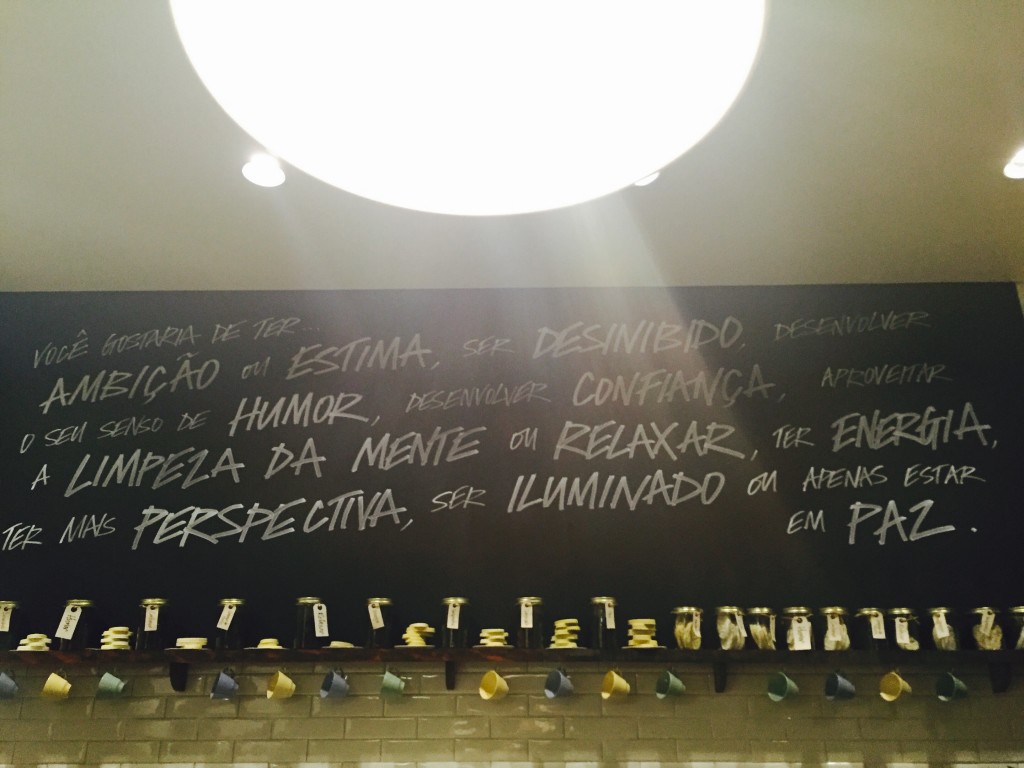 VOCÊ GOSTARIA DE TER...
AMBIÇÃO OU ESTIMA, SER DESINIBIDO, DESENVOLVER
O SEU SENSO DE HUMOR, DESENVOLVER CONFIANÇA, APROVEITAR
A LIMPEZA DA MENTE OU RELAXAR, TER ENERGIA,
TER MAIS PERSPECTIVA, SER ILUMINADO OU APENAS ESTAR
EM PAZ.